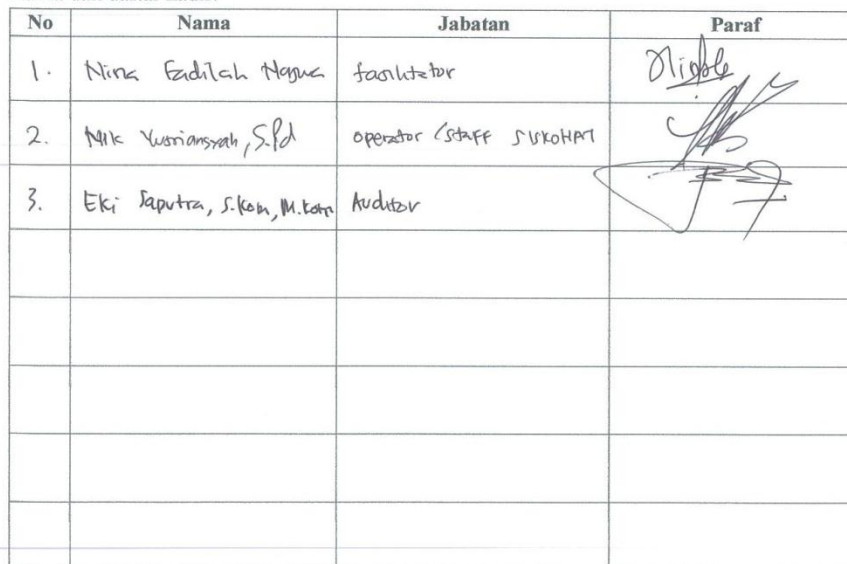 No Nama Jabatan Paraf
1. Nina Fadilah Nagwa fasilitator
2. Nik Yusriansyah, S.Pd operator (staff SISKOHAT
3. Eki Saputra, S.Kom, M.Kom Auditor